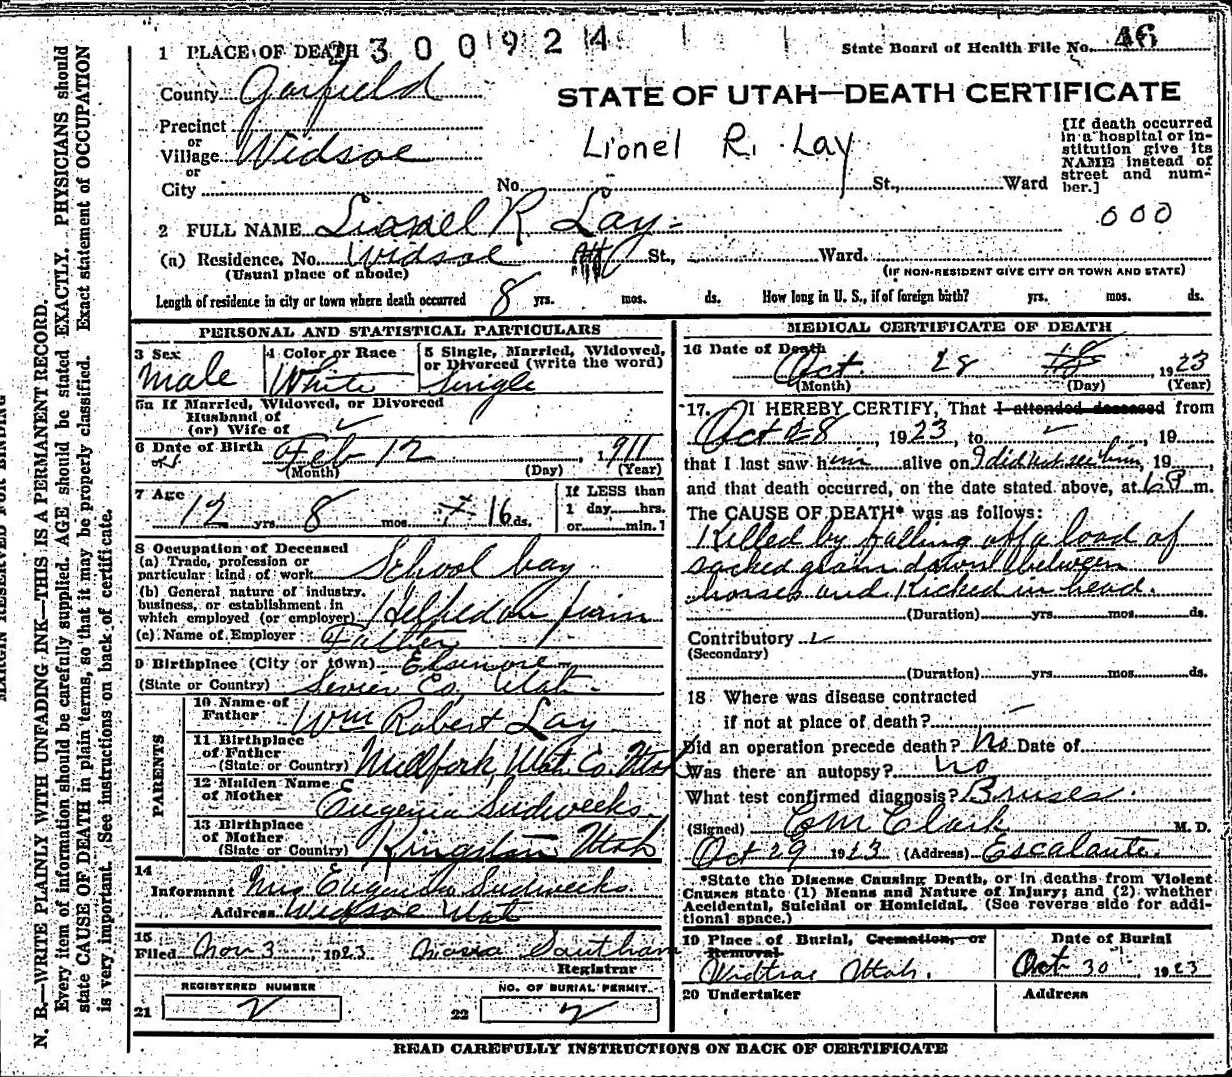 1 PLACE OF DEATH 2300924
State Board of Health File No. 46
County Garfield
STATE OF UTAH—DEATH CERTIFICATE
Precinct
or
Village Widsoe
or
City No. St., Ward
Lionel R. Lay
[If death occurred
in a hospital or in-
stitution give its
NAME instead of
street and num-
ber.]
000
2 FULL NAME Lionel R Lay
(a) Residence, No. Widsoe St., Ward.
(Usual place of abode)
(IF NON-RESIDENT GIVE CITY OR TOWN AND STATE)
Length of residence in city or town where death occurred 8 yrs. mos. ds. How long in U. S., if of foreign birth? yrs. mos. ds.
PERSONAL AND STATISTICAL PARTICULARS
3 Sex
Male
4 Color or Race
White
5 Single, Married, Widowed,
or Divorced (write the word)
Single
5a If Married, Widowed, or Divorced
Husband of
(or) Wife of
6 Date of Birth Feb 12, 1911
(Month) (Day) (Year)
7 Age
12 yrs. 8 mos. 16 ds.
If LESS than
1 day hrs.
or min. ?
8 Occupation of Deceased
(a) Trade, profession or
particular kind of work School boy
(b) General nature of industry,
business, or establishment in
which employed (or employer) Helped on farm
(c) Name of Employer Father
9 Birthplace (City or town) Elsinore
(State or Country) Sevier Co. Utah
PARENTS
10 Name of
Father Wm Robert Lay
11 Birthplace
of Father
(State or Country) Utah Co. Utah
12 Maiden Name
of Mother Eugenia Sudweeks
13 Birthplace
of Mother
(State or Country) Kingston Utah
14
Informant Mrs Sudweeks
Address Widsoe Utah
15
Filed Nov 3, 1923 Southam
Registrar
REGISTERED NUMBER
21 2
NO. OF BURIAL PERMIT
22 2
MEDICAL CERTIFICATE OF DEATH
16 Date of Death
Oct. 28 18 1923
(Month) (Day) (Year)
17. I HEREBY CERTIFY, That I attended deceased from
Oct 28, 1923, to , 19
that I last saw him alive on I did not see him, 19
and that death occurred, on the date stated above, at m.
The CAUSE OF DEATH* was as follows:
Killed by falling off a load of
sacked grain down between
horses and Kicked in head.
(Duration) yrs. mos. ds.
Contributory
(Secondary)
(Duration) yrs. mos. ds.
18 Where was disease contracted
if not at place of death?
Did an operation precede death? No Date of
Was there an autopsy? no
What test confirmed diagnosis? Bruses.
(Signed) E M Clark M. D.
Oct 29 1923 (Address) Escalante.
*State the Disease Causing Death, or in deaths from Violent
Causes state (1) Means and Nature of Injury; and (2) whether
Accidental, Suicidal or Homicidal. (See reverse side for addi-
tional space.)
19 Place of Burial, Cremation, or
Removal
Utah.
Date of Burial
Oct 30 1923
20 Undertaker
Address
READ CAREFULLY INSTRUCTIONS ON BACK OF CERTIFICATE
MARGIN RESERVED FOR BINDING
N. B.—WRITE PLAINLY WITH UNFADING INK—THIS IS A PERMANENT RECORD.
Every item of information should be carefully supplied. AGE should be stated EXACTLY. PHYSICIANS should
state CAUSE OF DEATH in plain terms, so that it may be properly classified. Exact statement of OCCUPATION
is very important. See instructions on back of certificate.